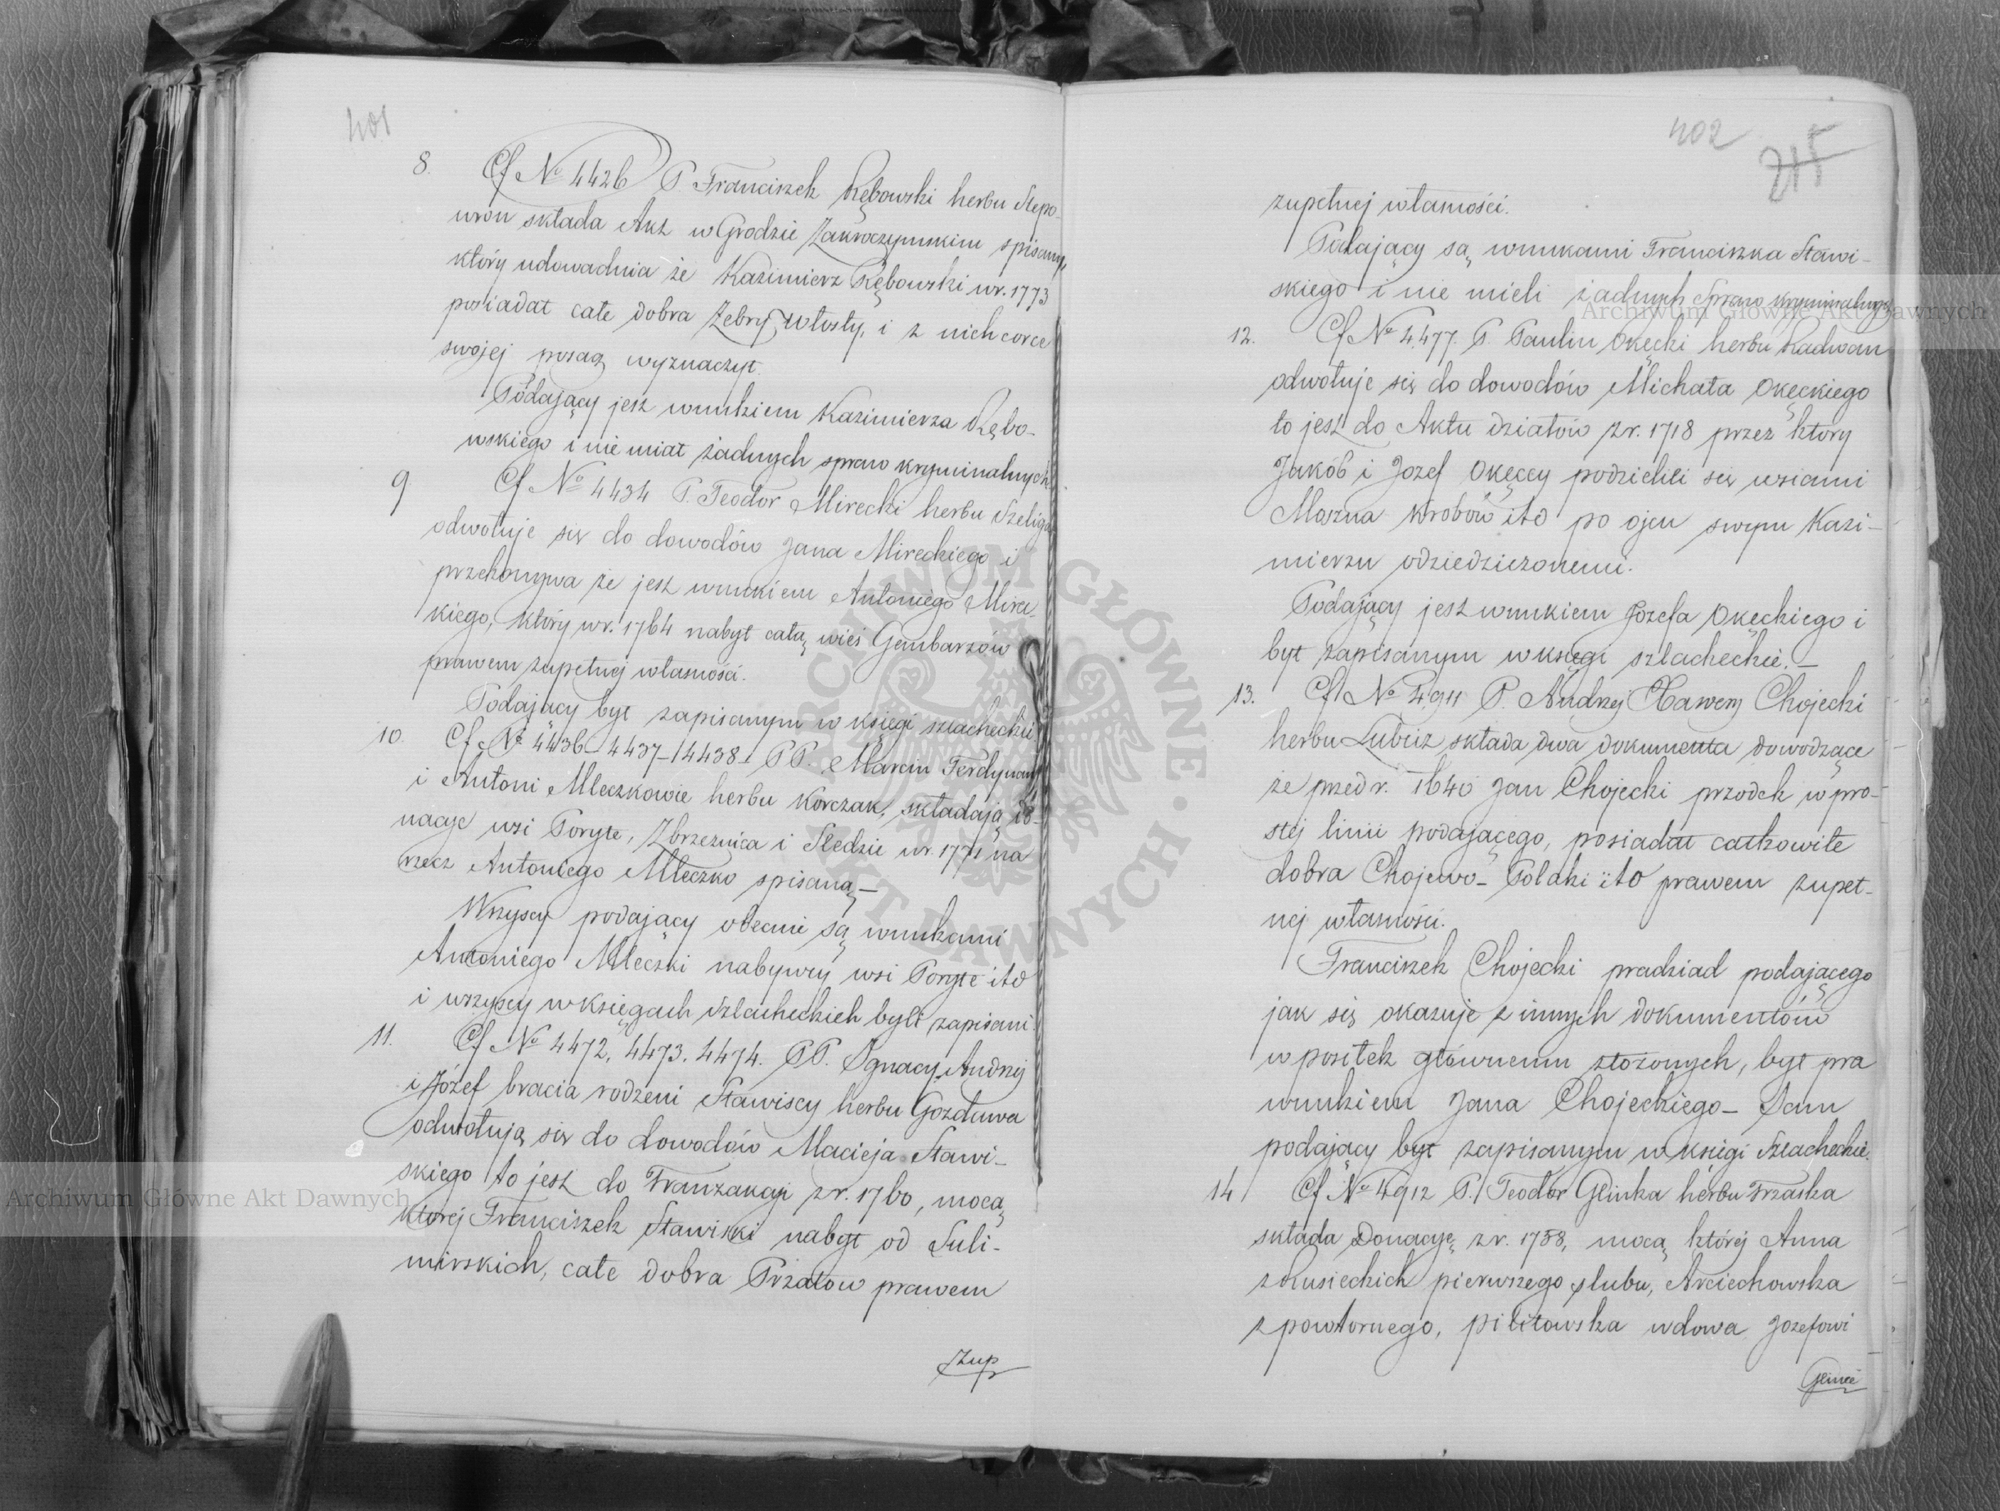 401
8. Cf № 4426 P. Franciszek Rębowski herbu Slepo-
wron składa Akt w Grodzie Zakroczymskim spisany,
który udowadnia że Kazimierz Rębowski w r. 1773
posiadał całe dobra Żebry Włosty, i z nich córce
swojej posag wyznaczył.
Podający jest wnukiem Kazimierza Rębo-
wskiego i nie miał żadnych spraw kryminalnych
9 Cf № 4434 P. Teodor Mirecki herbu Szeliga
odwołuje się do dowodów Jana Mireckiego i
przekonywa że jest wnukiem Antoniego Mirec-
kiego, który w r. 1764 nabył całą wieś Gembarzów
prawem zupełnej własności.
Podający był zapisanym w księgi szlacheckie
10. Cf № 4436 – 4437 – 4438 – PP. Marcin Ferdynand
i Antoni Mleczkowie herbu Korczak, składają do-
nacje wsi Poryte, Zbrzeźnica i Sledzie w r. 1771 na
rzecz Antoniego Mleczko spisaną –
Wszyscy podający obecnie są wnukami
Antoniego Mleczki nabywcy wsi Poryte itd
i wszyscy w księgach szlacheckich byli zapisani
11. Cf № 4472, 4473. 4474. PP. Ignacy, Andrzej
i Józef bracia rodzeni Stawiscy herbu Gozdawa
odwołują się do dowodów Macieja Stawi-
skiego to jest do Tranzakcji z r. 1760, mocą
której Franciszek Stawiski nabył od Suli-
mirskich, całe dobra Przatów prawem
zup
402
215
zupełnej własności.
Podający są wnukami Franciszka Stawi-
skiego i nie mieli żadnych Spraw kryminalnych
12. Cf № 4477. P. Paulin Okęcki herbu Radwan
odwołuje się do dowodów Michała Okęckiego
to jest do Aktu działów z r. 1718 przez który
Jakób i Jozef Okęccy podzielili się wsiami
Mozna Wrobów itd po ojcu swym Kazi-
mierzu odziedziczonemi.
Podający jest wnukiem Józefa Okęckiego i
był zapisanym w księgi szlacheckie. –
13. Cf № 4911 P. Andrzej Xawery Chojecki
herbu Lubicz składa dwa dokumenta dowodzące
że przed r. 1640 Jan Chojecki przodek w pro-
stej linii podającego, posiadał całkowite
dobra Chojewo – Polaki itd prawem zupeł-
nej własności.
Franciszek Chojecki pradziad podającego
jak się okazuje z innych dokumentów
w posiłek głównemu złożonych, był pra
wnukiem Jana Chojeckiego – Sam
podający był zapisanym w księgi Szlacheckie.
14 Cf № 4912 P. Teodor Glinka herbu Trzaska
składa Donacyę z r. 1788, mocą której Anna
z Rusieckich pierwszego ślubu, Arciechowska
z powtornego, Pilitowska wdowa Jozefowi
Glince
Archiwum Główne Akt Dawnych
Archiwum Główne Akt Dawnych
ARCHIWUM GŁÓWNE AKT DAWNYCH